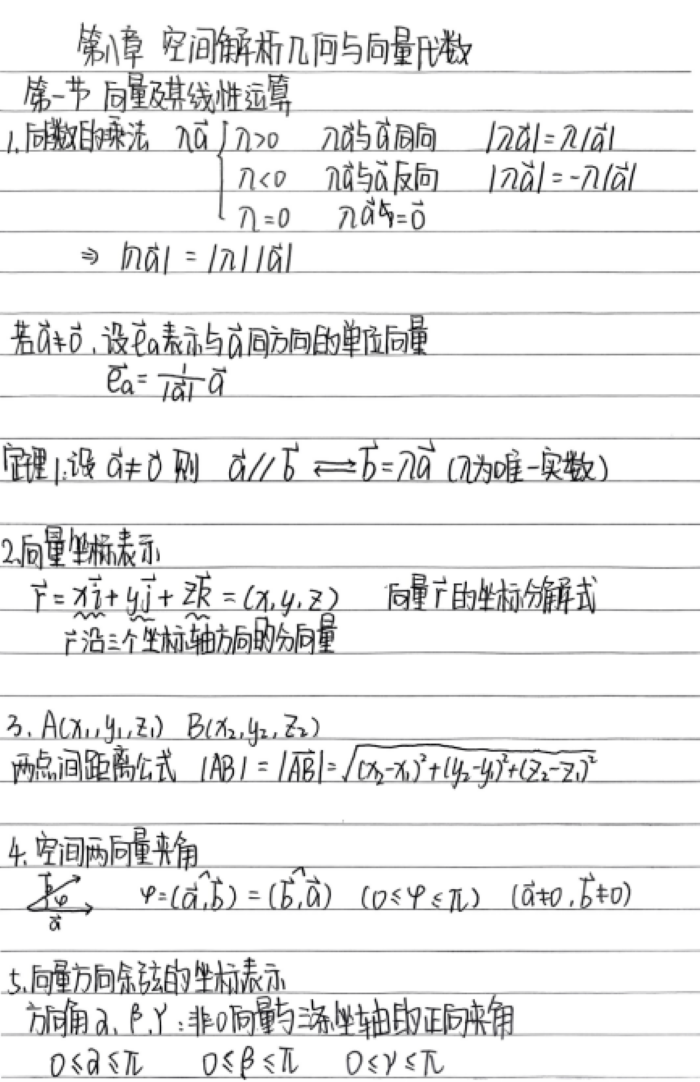 第八章 空间解析几何与向量代数
第一节 向量及其线性运算
1.向数的乘法 λa⃗ { λ>0 λa⃗与a⃗同向 |λa⃗|=λ|a⃗|
λ<0 λa⃗与a⃗反向 |λa⃗|=-λ|a⃗|
λ=0 λa⃗=0⃗
⇒ |λa⃗| = |λ||a⃗|
若a⃗≠0⃗,设e⃗a表示与a⃗同方向的单位向量
e⃗a = 1/|a⃗| a⃗
定理1:设 a⃗≠0⃗ 则 a⃗∥b⃗ ⇌ b⃗=λa⃗ (λ为唯一实数)
2.向量坐标表示
r⃗ = xi⃗+yj⃗+zk⃗ = (x,y,z) 向量r⃗的坐标分解式
r⃗沿三个坐标轴方向的分向量
3. A(x₁,y₁,z₁) B(x₂,y₂,z₂)
两点间距离公式 |AB| = |AB⃗| = √((x₂-x₁)²+(y₂-y₁)²+(z₂-z₁)²)
4.空间两向量夹角
b⃗ φ φ=(a⃗,^b⃗) = (b⃗,^a⃗) (0≤φ≤π) (a⃗≠0,b⃗≠0)
a⃗
5.向量方向余弦的坐标表示
方向角α、β、γ:非0向量与三条坐轴的正向夹角
0≤α≤π 0≤β≤π 0≤γ≤π